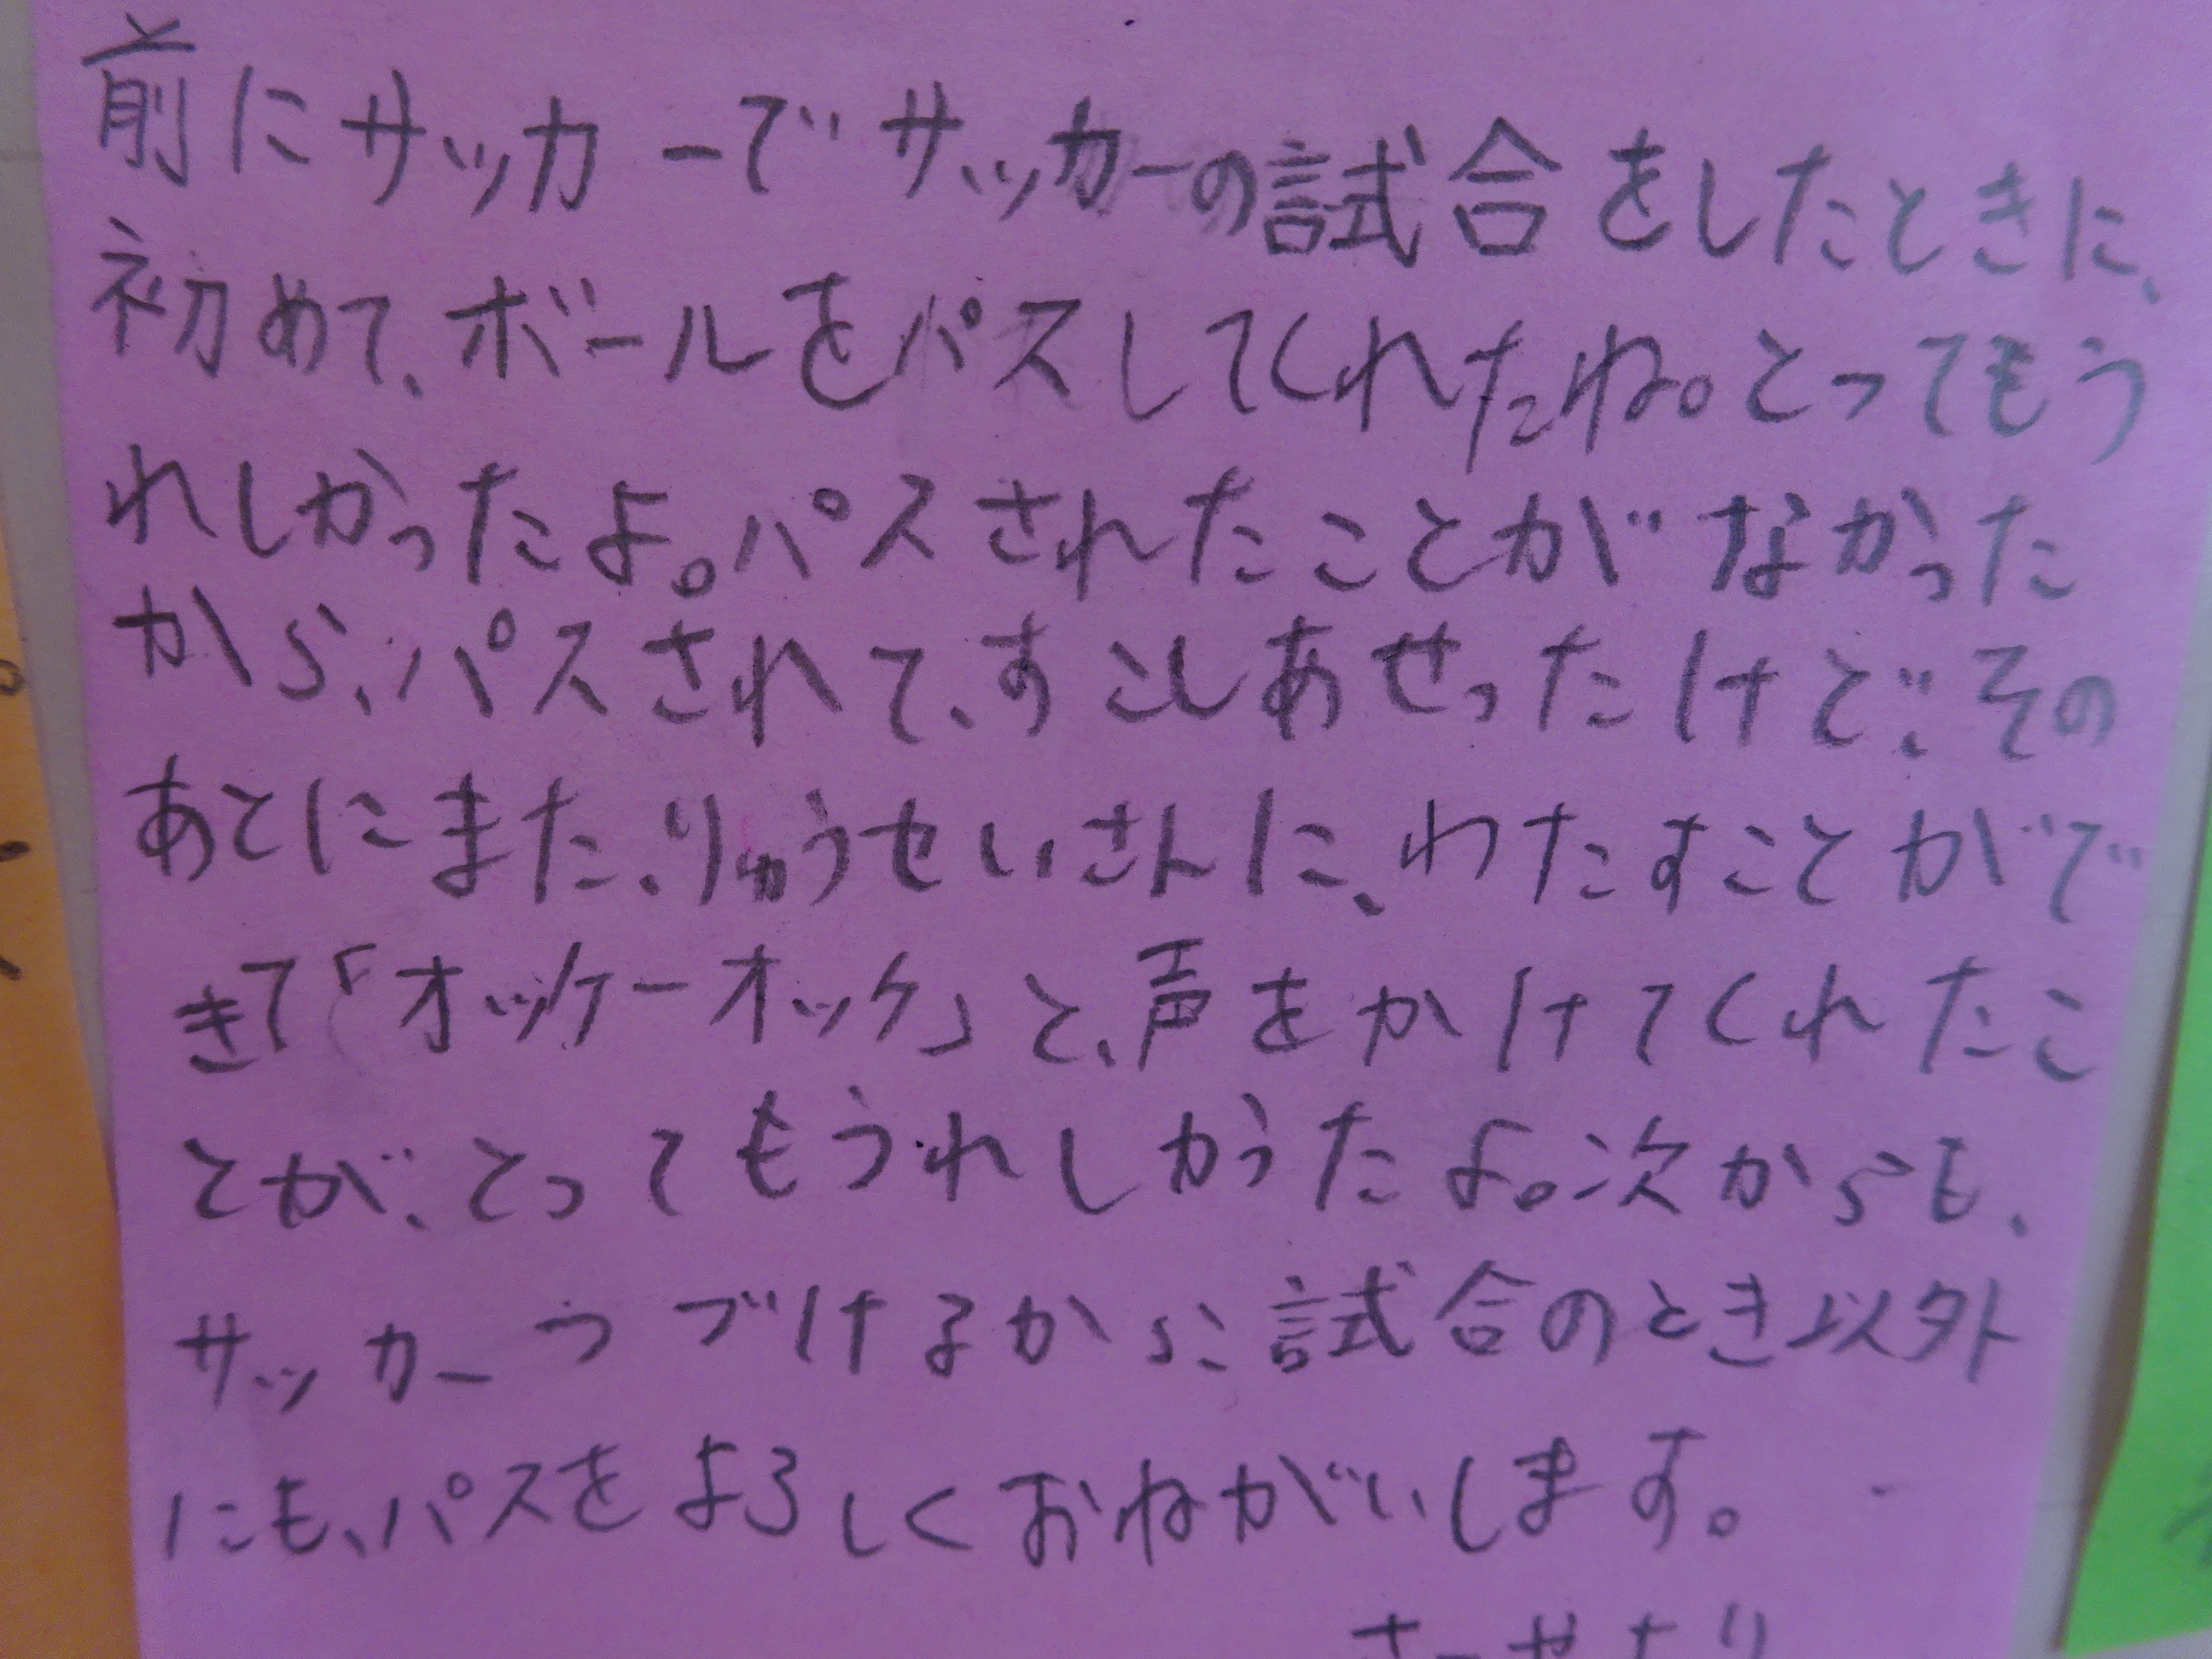 前にサッカーでサッカーの試合をしたときに、
初めて、ボールをパスしてくれたね。とってもう
れしかったよ。パスされたことがなかった
から、パスされて、すこしあせったけど、その
あとにまた、りゅうせいさんに、わたすことがで
きて「オッケーオッケ」と、声をかけてくれたこ
とが、とってもうれしかったよ。次からも、
サッカーつづけるから、試合のとき以外
にも、パスをよろしくおねがいします。